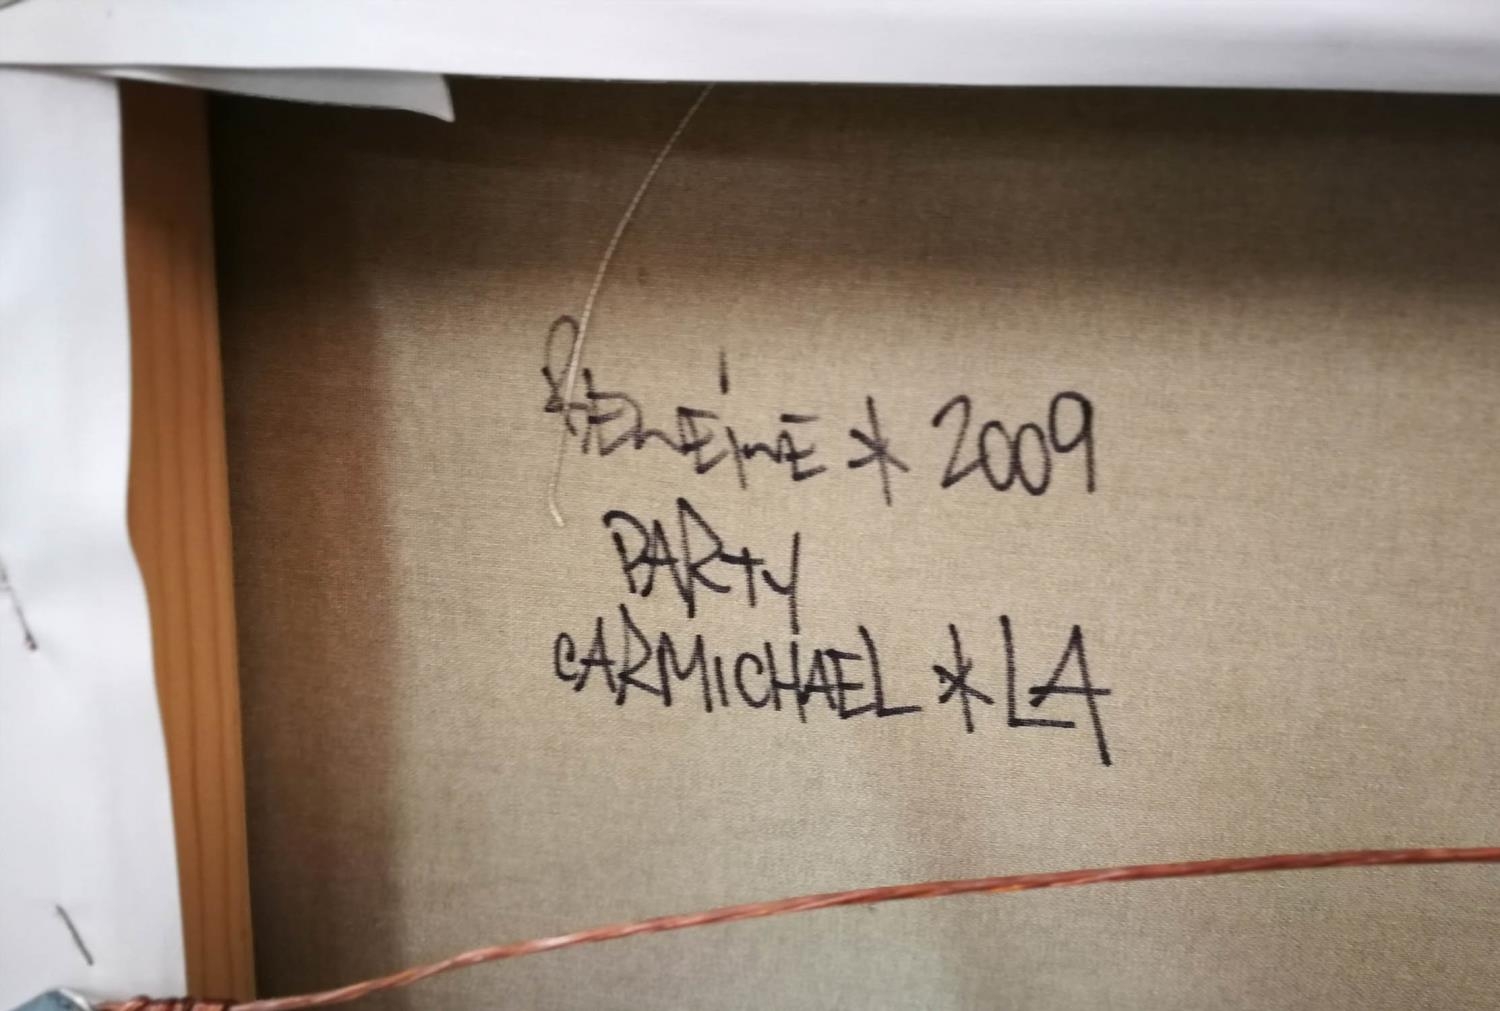 * 2009
PARTY
CARMICHAEL * LA